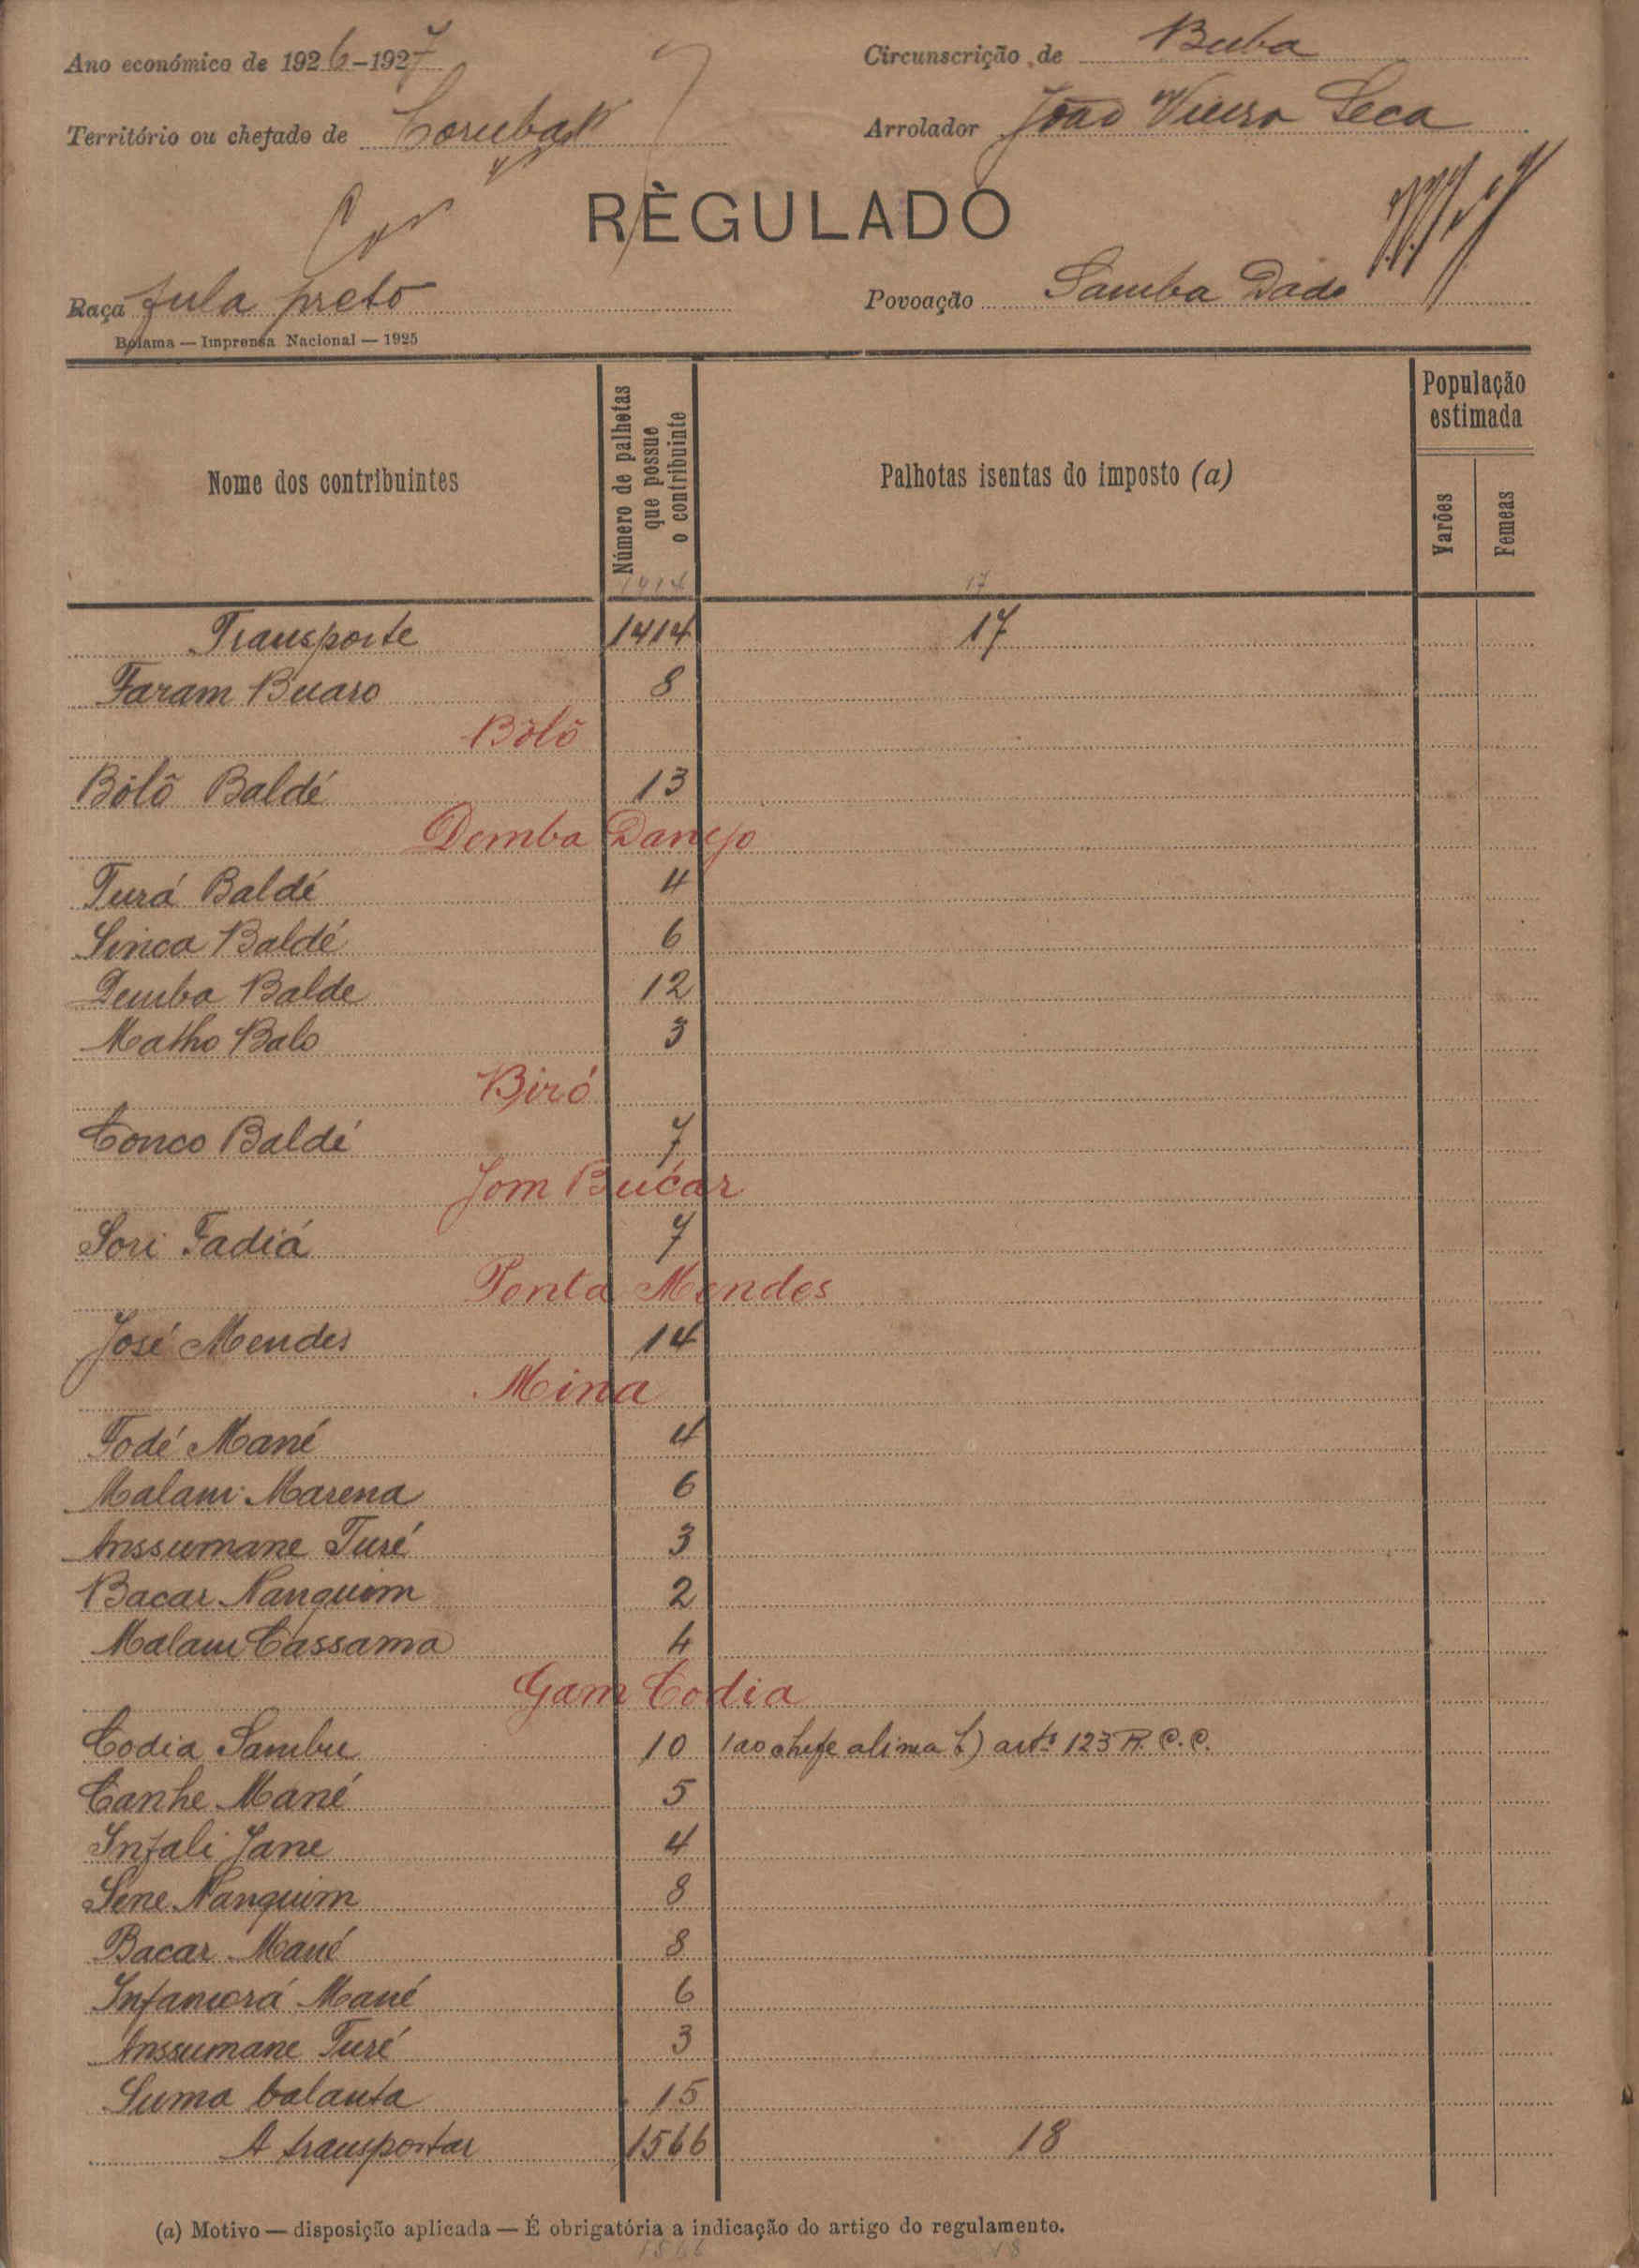 Ano económico de 1926-1927
Circunscrição de Buba
Território ou chefado de Corubal
Arrolador João Vieira Seca
RÈGULADO
Raça fula preto
Povoação Samba Dado
Bolama — Imprensa Nacional — 1925
Nome dos contribuintes
Número de palhotas que possue o contribuinte
Palhotas isentas do imposto (a)
População estimada
Varões
Femeas
1414 17
Transporte 1414 17
Faram Buaro 8
Bôlô
Bôlô Baldé 13
Demba Danejo
Turá Baldé 4
Sinca Baldé 6
Demba Balde 12
Matho Balo 3
Biró
Conco Baldé 7
Jom Bucar
Sori Fadiá 7
Ponta Mendes
José Mendes 14
Mina
Fodé Mané 4
Malam Marena 6
Anssumane Turé 3
Bacar Nanquim 2
Malam Cassama 4
Gam Codia
Codia Sambu 10 1 ao chefe alinea b) artº 123 R. C. C.
Canhe Mané 5
Infali Jane 4
Sene Nanquim 8
Bacar Mané 8
Infamorá Mané 6
Anssumane Turé 3
Suma balanta 15
A transportar 1566 18
(a) Motivo — disposição aplicada — É obrigatória a indicação do artigo do regulamento.
1566 18